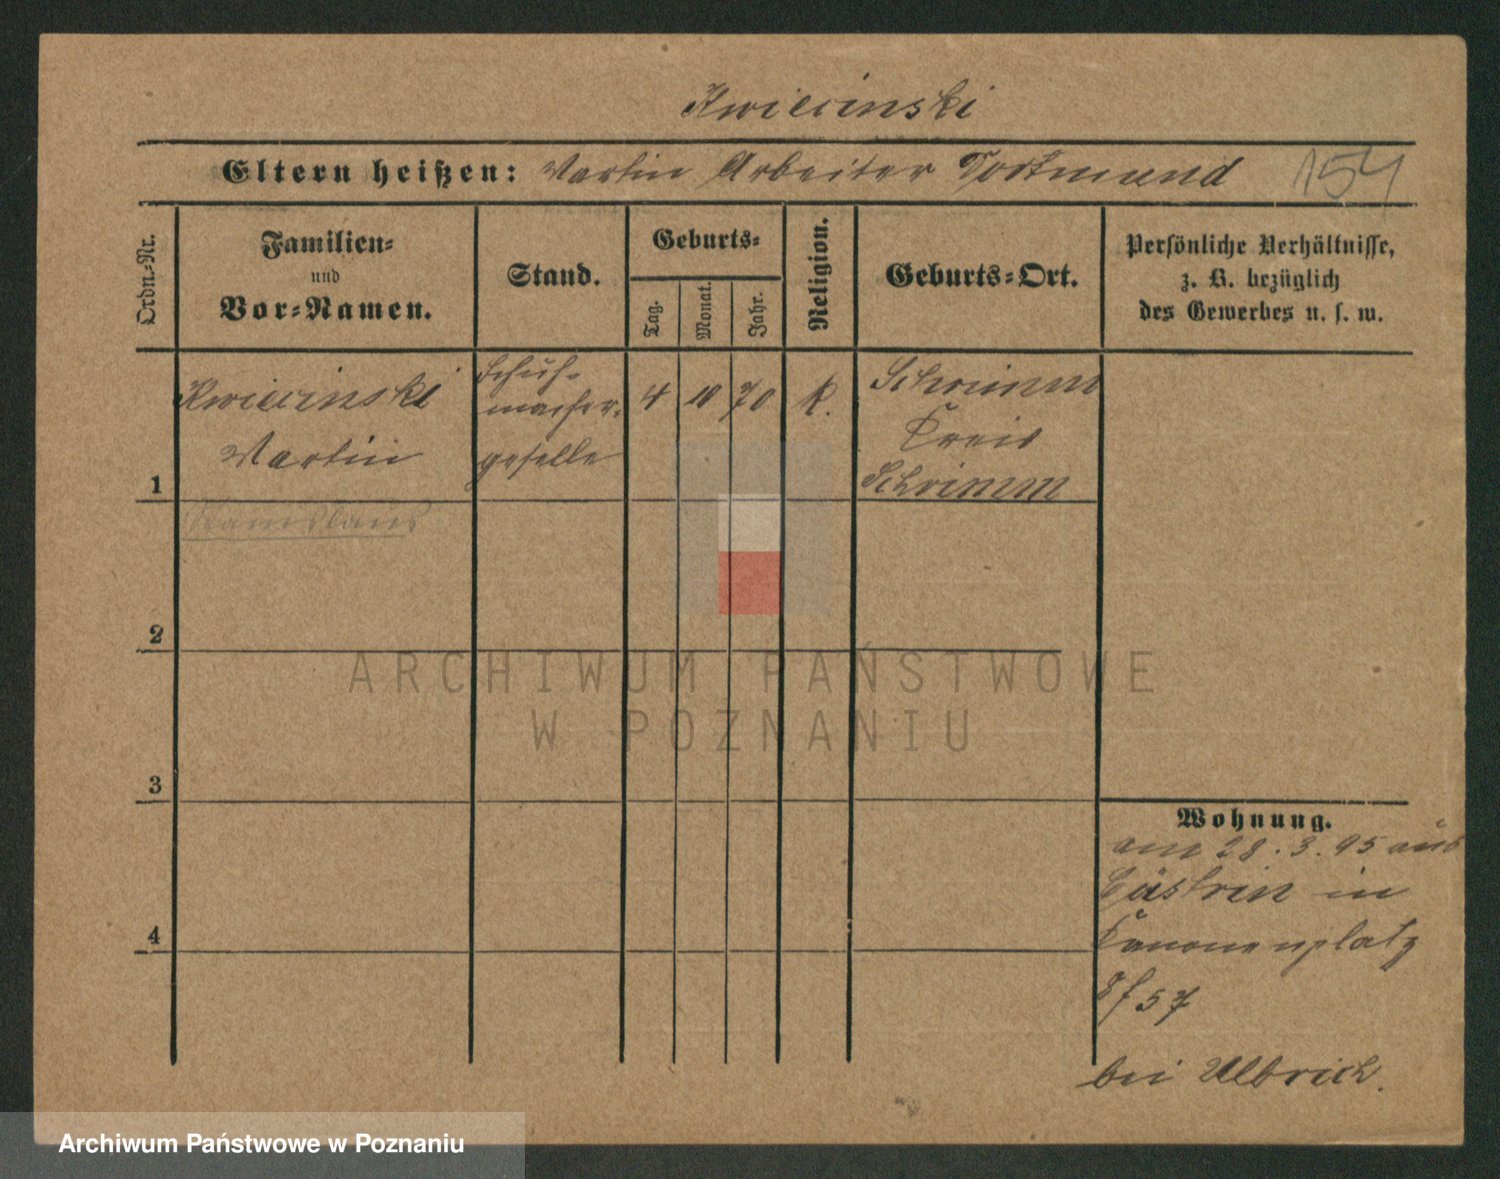 Kwiecinski
Eltern heißen: Martin Arbeiter Dortmund 154
Ordn.-Nr.
Familien-
und
Vor-Namen.
Stand.
Geburts-
Tag.
Monat.
Jahr.
Religion.
Geburts-Ort.
Persönliche Verhältnisse,
z. B. bezüglich
des Gewerbes u. s. w.
1
Kwiecinski
Martin
Schuh-
macher-
geselle
4 10 70 K.
Schrimm
Kreis
Schrimm
Stanislaus
2
3
4
Wohnung.
am 28.3.95 aus
Cüstrin in
Kanonenplatz
57
bei Ulbrich.
ARCHIWUM PAŃSTWOWE
W POZNANIU
Archiwum Państwowe w Poznaniu